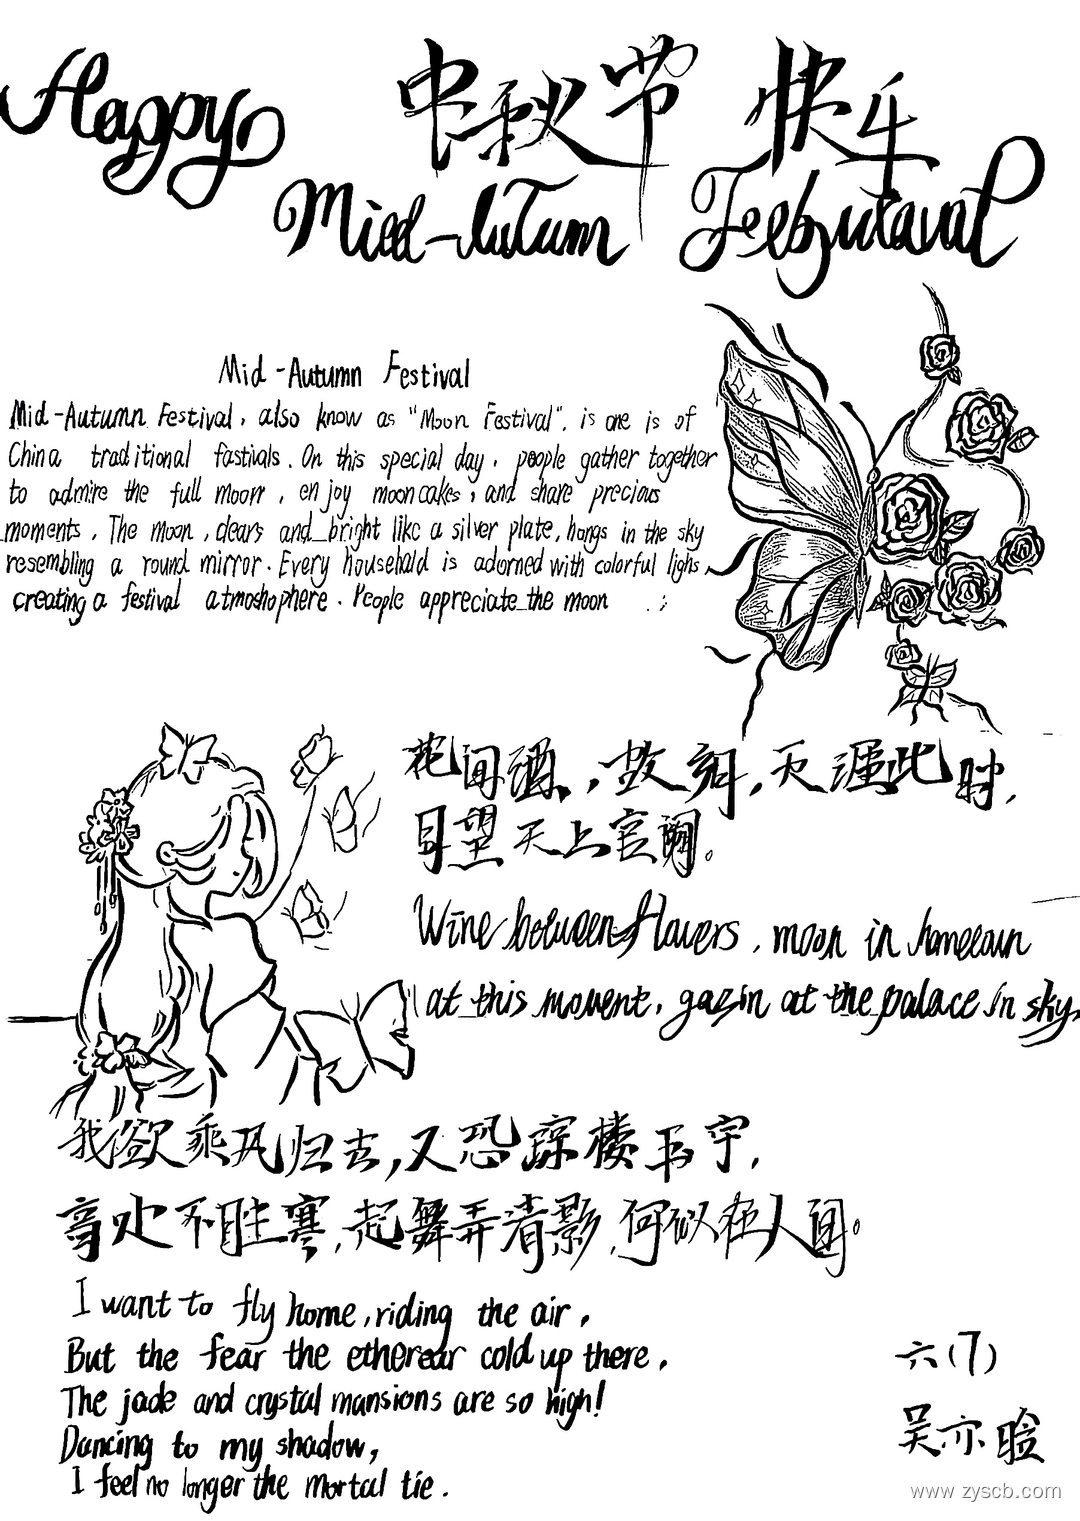 Happy 中秋节 快乐
Mid-Autumn
Mid-Autumn Festival
Mid-Autumn Festival, also know as "Moon Festival", is one is of
China traditional fastivals. On this special day, people gather together
to admire the full moon, enjoy mooncakes, and share precious
moments. The moon, clears and bright like a silver plate, hangs in the sky
resembling a round mirror. Every household is adorned with colorful lighs,
creating a festival atmoshophere. People appreciate the moon
花间酒,故 天涯此时,
目望天上宫阙。
Wine between flowers, moon in hometown
at this moment, gazin at the palace in sky,
我欲乘风归去,又恐琼楼玉宇,
高处不胜寒,起舞弄清影,何似在人间。
I want to fly home, riding the air,
But the fear the etherear cold up there,
The jade and crystal mansions are so high!
Dancing to my shadow,
I feel no longer the mortal tie.
六(7)
吴亦晗
www.zyscb.com